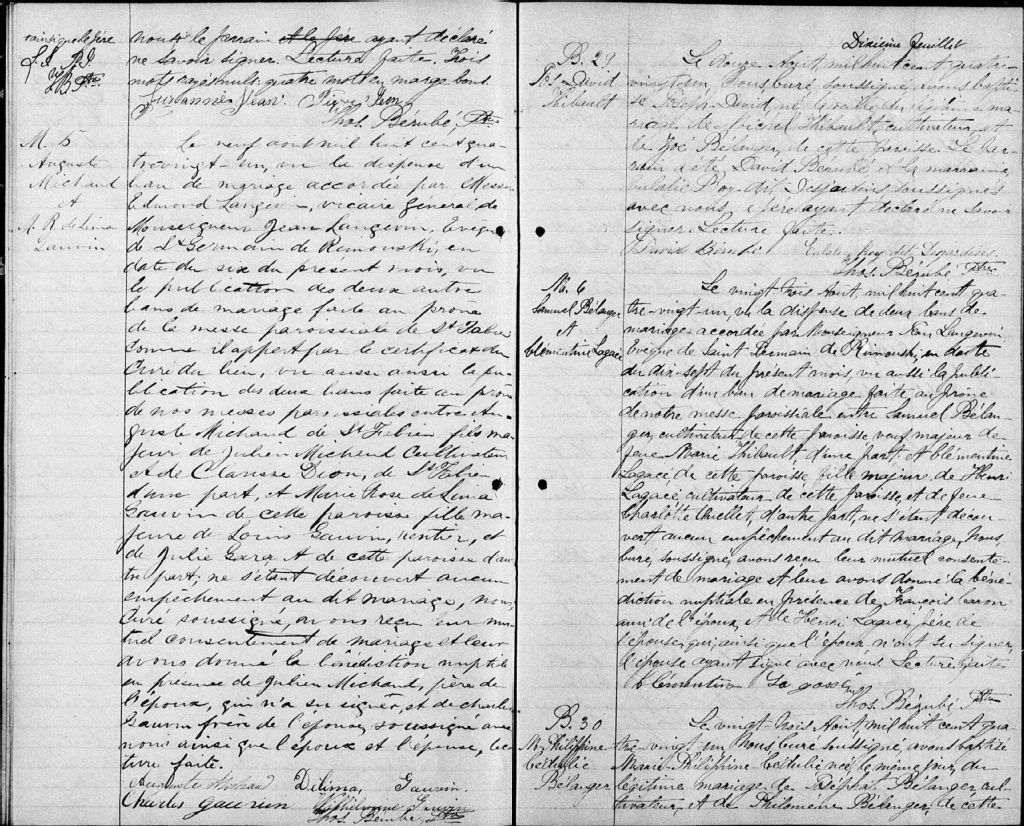 nous le parrain et le père ayant déclaré
ne savoir signer. Lecture faite. Trois
mots rayés nuls, quatre mots en marge bons.
Thos. Bérubé, Ptre
M. 5
Auguste
Michaud
&
M. R. de Lima
Gauvin
Le neuf aout mil huit cent qua-
trevingt-un, vu la dispense d'un
ban de mariage accordée par Messire
Edmond Langevin, vicaire général de
Monseigneur Jean Langevin, Evêque
de St Germain de Rimouski, en
date du six du présent mois, vu
la publication des deux autres
bans de mariage faite au prône
de la messe paroissiale de St Fabien
comme il appert par le certificat du
Curé du lieu, vu aussi la pu-
blication des deux bans faite au prône
de nos messes paroissiales entre Au-
guste Michaud de St Fabien fils ma-
jeur de Julien Michaud Cultivateur
et de Clarisse Dion, de St Fabien
d'une part, et Marie Rose de Lima
Gauvin de cette paroisse fille ma-
jeure de Louis Gauvin, rentier, et
de Julie de cette paroisse d'au-
tre part; ne s'étant découvert aucun
empêchement au dit mariage, nous,
Curé soussigné, avons reçu leur mu-
tuel consentement de mariage et leur
avons donné la bénédiction nuptiale
en présence de Julien Michaud, père de
l'époux, qui n'a su signer, et de Charles
Gauvin frère de l'épouse, soussigné avec
nous ainsi que l'époux et l'épouse, lec-
ture faite.
Delima Gauvin
Charles Gauvin
Thos. Bérubé, Ptre
Dixième feuillet
B. 29
Jos. David
Thibault
Le douze Aout, mil huit cent quatre-
vingt-un, Nous, Curé soussigné, avons bapti-
sé Joseph David, né la veille du légitime ma-
riage de Thibault, cultivateur, et
de Zoé Bélanger, de cette paroisse. Le Par-
rain a été David Bérubé et la marraine,
Eulalie Roy dit Desjardins soussignés
avec nous, le père ayant déclaré ne savoir
signer. Lecture faite.
David Bérubé Eulalie Roy dit Desjardins
Thos. Bérubé Ptre
Ma. 6
Samuel Bélanger
&
Clémentine Lagacé
Le vingt trois Aout, mil huit cent qua-
tre-vingt-un, vu la dispense de deux bans de
mariage accordée par Monseigneur Jean Langevin
Evêque de Saint Germain de Rimouski, en date
du dix-sept du présent mois, vu aussi la publi-
cation d'un ban de mariage faite au prône
de notre messe paroissiale entre Samuel Bélan-
ger, cultivateur de cette paroisse veuf majeur de
feue Marie Thibault, d'une part, et Clémentine
Lagacé de cette paroisse, fille majeure de Henri
Lagacé cultivateur de cette paroisse, et de feue
Charlotte Ouellet, d'autre part, ne s'étant décou-
vert aucun empêchement au dit mariage, Nous,
Curé, soussigné, avons reçu leur mutuel consente-
ment de mariage et leur avons donné la béné-
diction nuptiale en présence de François Caron
ami de l'époux, et de Henri Lagacé, père de
l'épouse, qui, ainsi que l'époux n'ont su signer,
l'épouse ayant signé avec nous. Lecture faite.
Clémentine Lagassé
Thos. Bérubé Ptre
B. 30
M. Philippine
Bédulie
Bélanger
Le vingt-trois Aout, mil huit cent qua-
tre-vingt un, Nous, Curé soussigné, avons baptisé
Marie Philippine Bédulie née le même jour, du
légitime mariage de Bélanger, cul-
tivateur, et de Philomène Bélanger, de cette